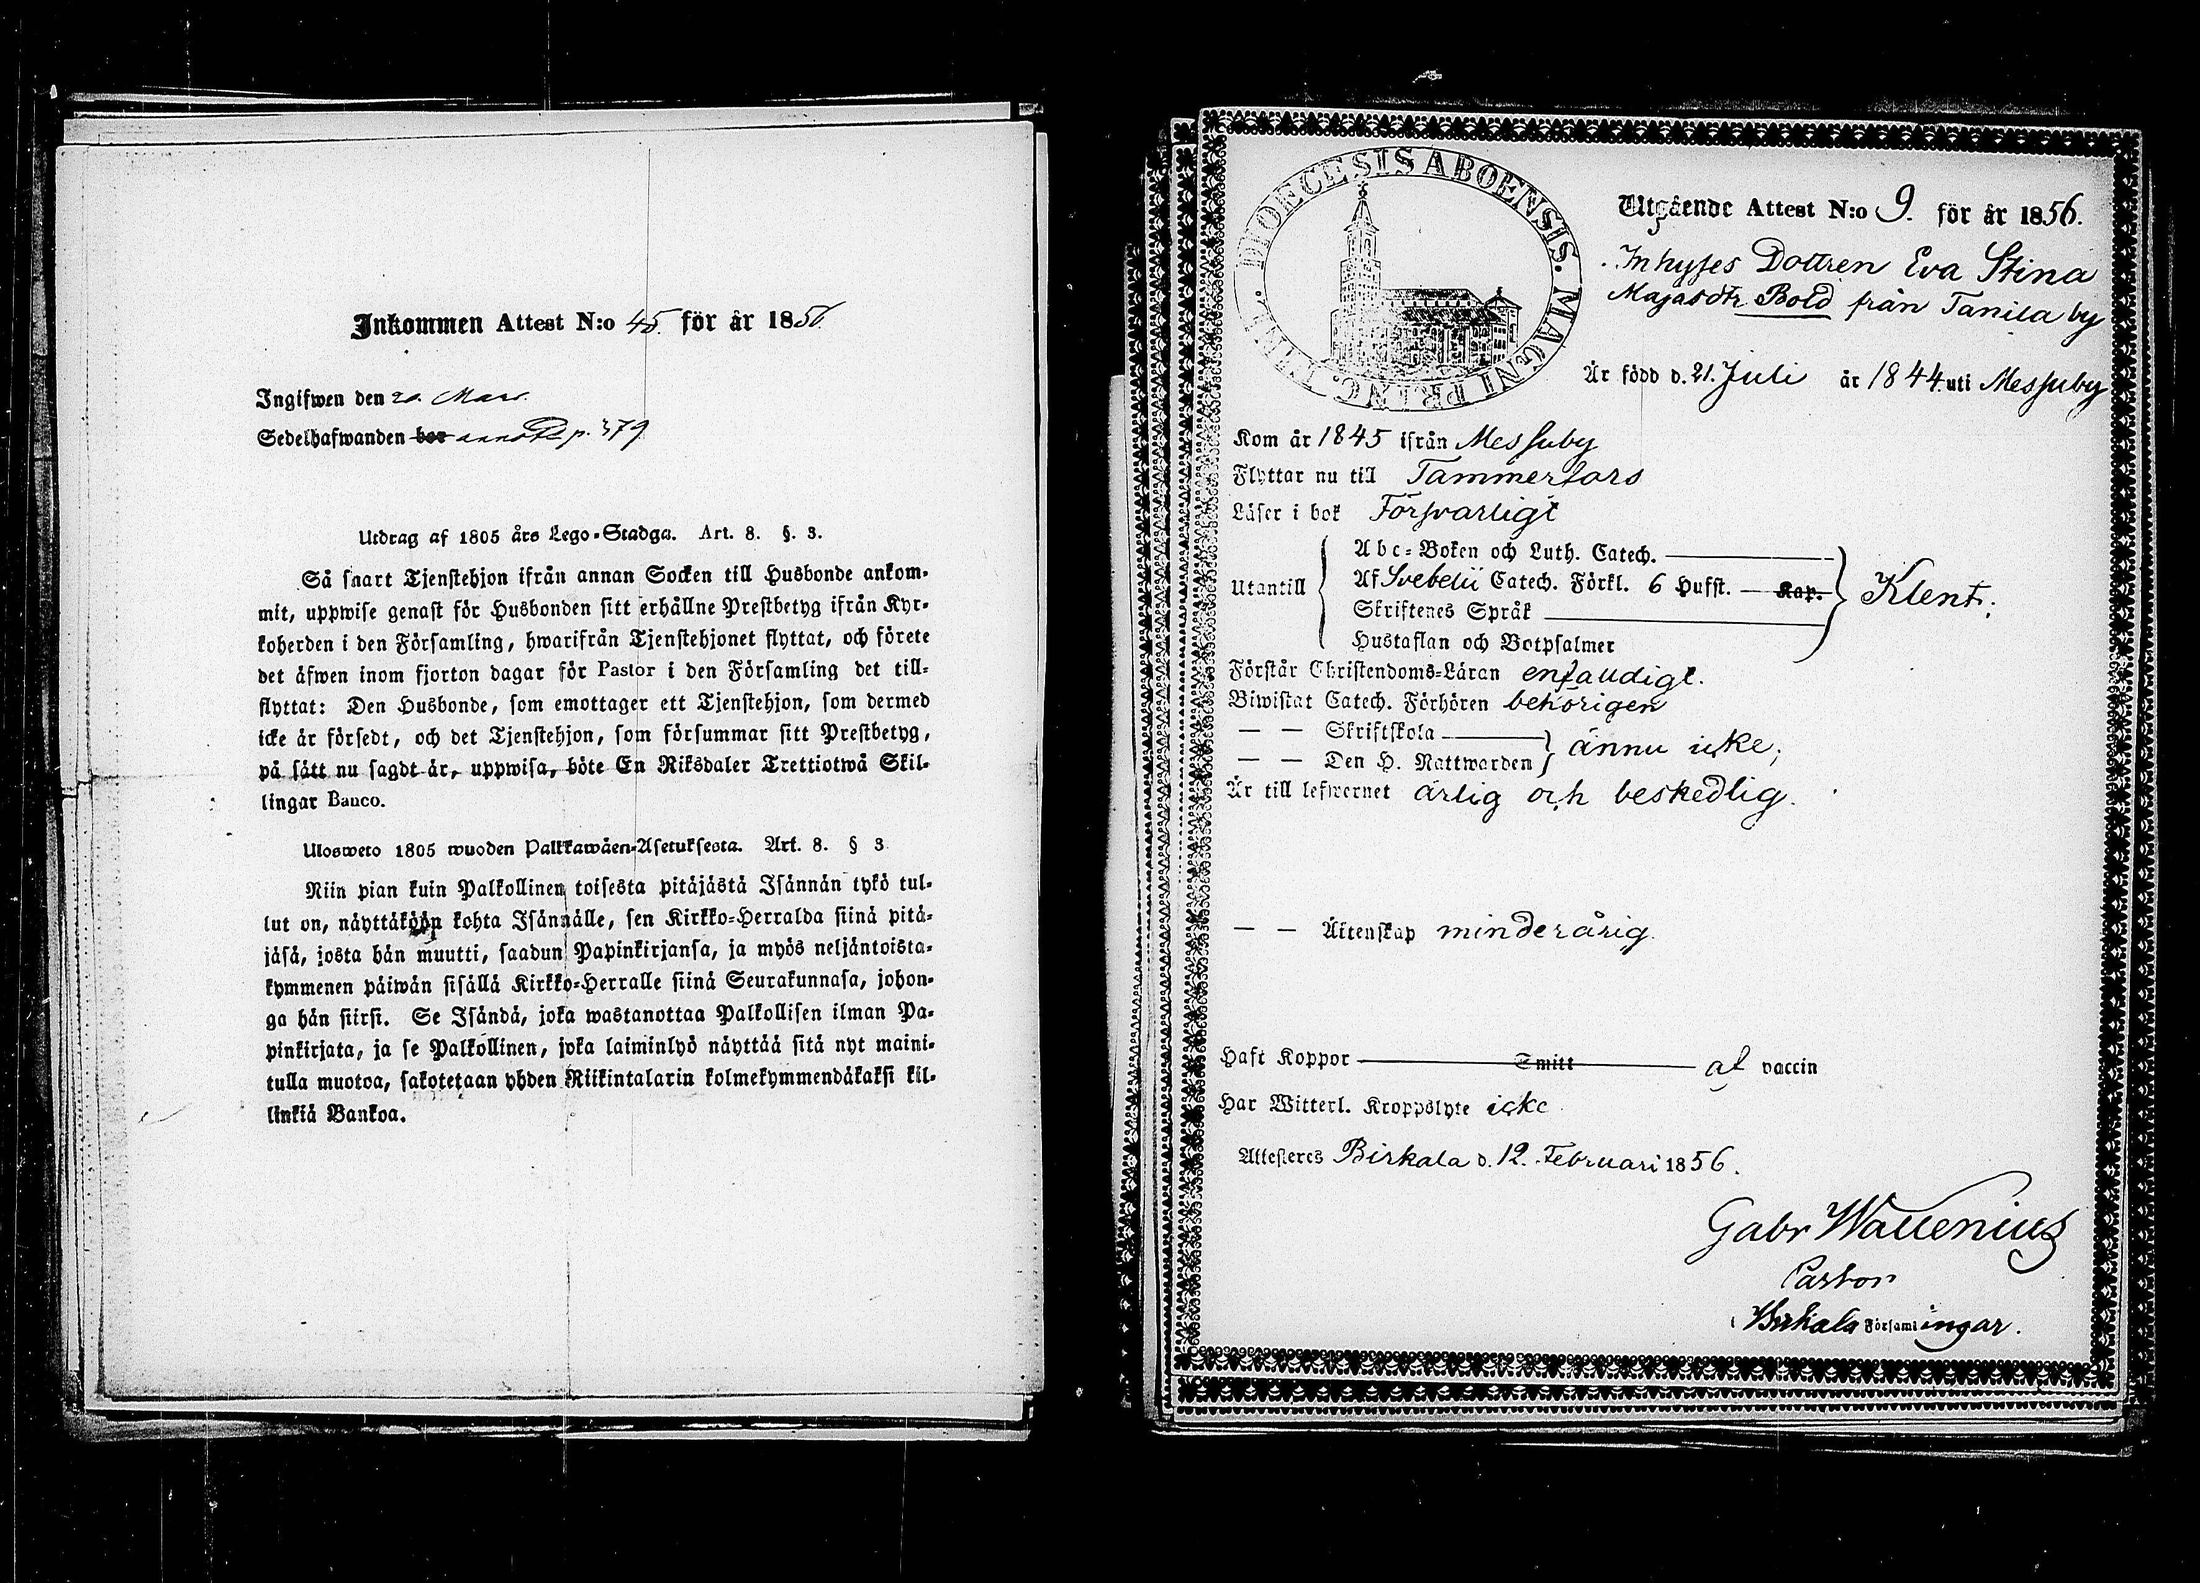 Inkommen Attest N:o 45. för år 1856.
Ingifwen den 20. Mars.
Sedelhafwanden bor p. 379
Utdrag af 1805 års Lego-Stadga. Art. 8. §. 3.
Så snart Tjenstehjon ifrån annan Socken till Husbonde ankom-
mit, uppwise genast för Husbonden sitt erhållne Prestbetyg ifrån Kyr-
koherden i den Församling, hwarifrån Tjenstehjonet flyttat, och förete
det äfwen inom fjorton dagar för Pastor i den Församling det till-
flyttat: Den Husbonde, som emottager ett Tjenstehjon, som dermed
icke är försedt, och det Tjenstehjon, som försummar sitt Prestbetyg,
på sätt nu sagdt är, uppwisa, böte En Riksdaler Trettiotwå Skil-
lingar Banco.
Ulosweto 1805 wuoden Palkkawäen-Asetuksesta. Art. 8. § 3
Niin pian kuin Palkollinen toisesta pitäjästä Isännän tykö tul-
lut on, näyttäköön kohta Isännälle, sen Kirkko-Herralda siinä pitä-
jäsä, josta hän muutti, saadun Papinkirjansa, ja myös neljäntoista-
kymmenen päiwän sisällä Kirkko-Herralle siinä Seurakunnasa, johon-
ga hän siirsi. Se Isändä, joka wastanottaa Palkollisen ilman Pa-
pinkirjata, ja se Palkollinen, joka laiminlyö näyttää sitä nyt maini-
tulla muotoa, sakotetaan yhden Riikintalarin kolmekymmendäkaksi kil-
linkiä Bankoa.
DIOECESIS ABOENSIS. MAGNI PRINC. FINL.
Utgående Attest N:o 9. för år 1856.
Inhyses Dottren Eva Stina
Majasdtr Bold från Tanila by
Är född d. 21. Juli år 1844 uti Messuby
Kom år 1845 ifrån Messuby
Flyttar nu till Tammerfors
Läser i bok Försvarligt
Abc-Boken och Luth. Catech.
Utantill Af Svebelii Catech. Förkl. 6 Hufst. Kap. Klent;
Skriftenes Språk
Hustaflan och Botpsalmer
Förstår Christendoms-Läran enfaldigt.
Biwistat Catech. Förhören behörigen
— — Skriftskola
— — Den H. Nattwarden ännu icke;
Är till lefwernet ärlig och beskedlig.
— — Äktenskap minderårig.
Haft Koppor Smitt af vaccin
Har Witterl. Kroppslyte icke
Attesteres Birkala d. 12. Februari 1856.
Gabr Wallenius
Pastor
Birkala Församlingar.